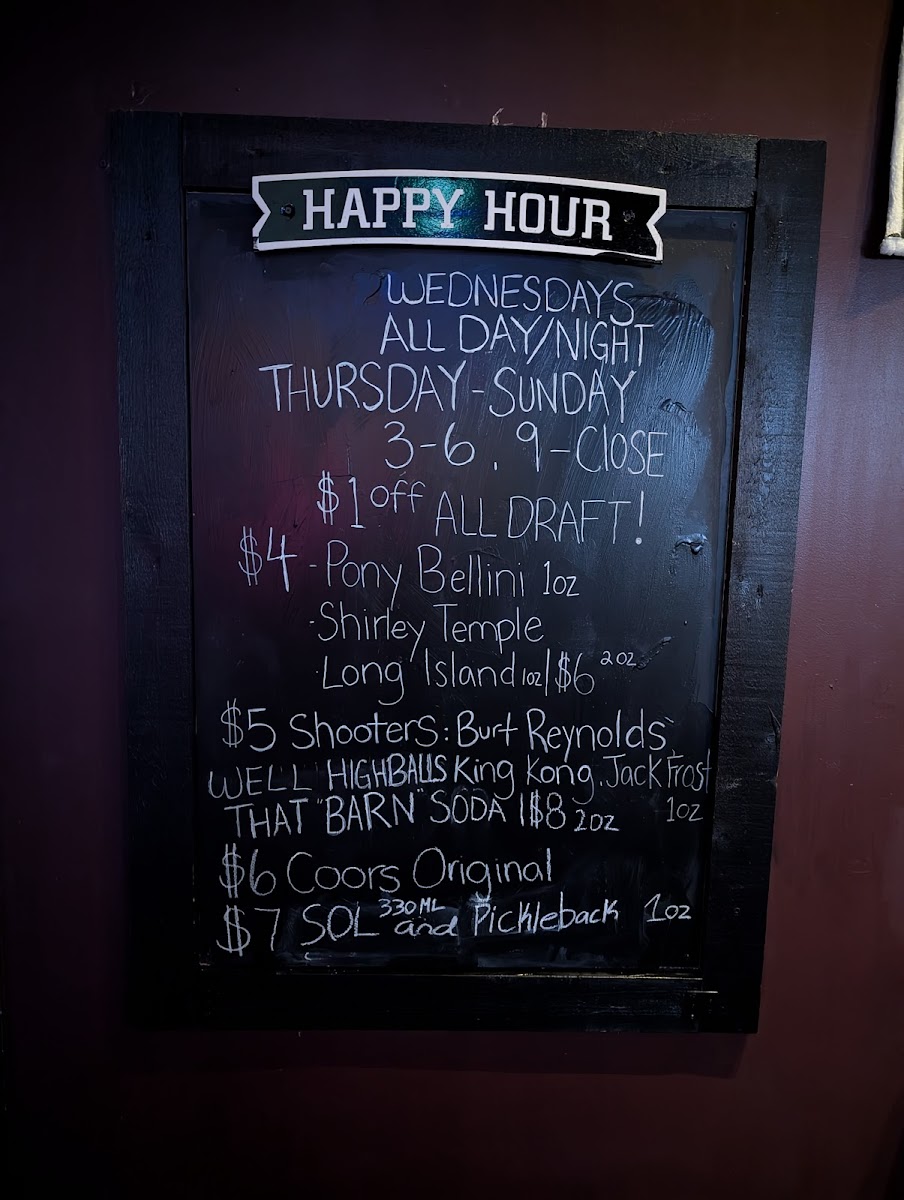 HAPPY HOUR
WEDNESDAYS
ALL DAY/NIGHT
THURSDAY-SUNDAY
3-6 . 9-CLOSE
$1 off ALL DRAFT!
$4 - Pony Bellini 1oz
· Shirley Temple
· Long Island 1oz | $6 2oz
$5 Shooters: Burt Reynolds,
WELL HIGHBALLS King Kong. Jack Frost
THAT "BARN" SODA | $8 2oz 1oz
$6 Coors Original
$7 SOL 330ML and Pickleback 1oz